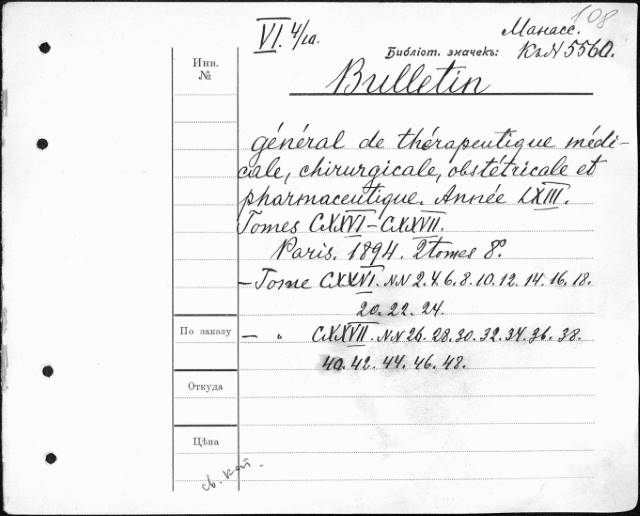 108
VI. 4/10.
Манасс.
Библіот. значекъ: Къ N 5560.
Инв.
№
Bulletin
général de thérapeutique médi-
cale, chirurgicale, obstétricale et
pharmaceutique. Année LXIII.
Tomes CXXVI–CXXVII.
Paris. 1894. 2 tomes 8°.
– Tome CXXVI. NN 2. 4. 6. 8. 10. 12. 14. 16. 18.
20. 22. 24.
По заказу
– " CXXVII. NN 26. 28. 30. 32. 34. 36. 38.
40. 42. 44. 46. 48.
Откуда
Цѣна
св. кат.